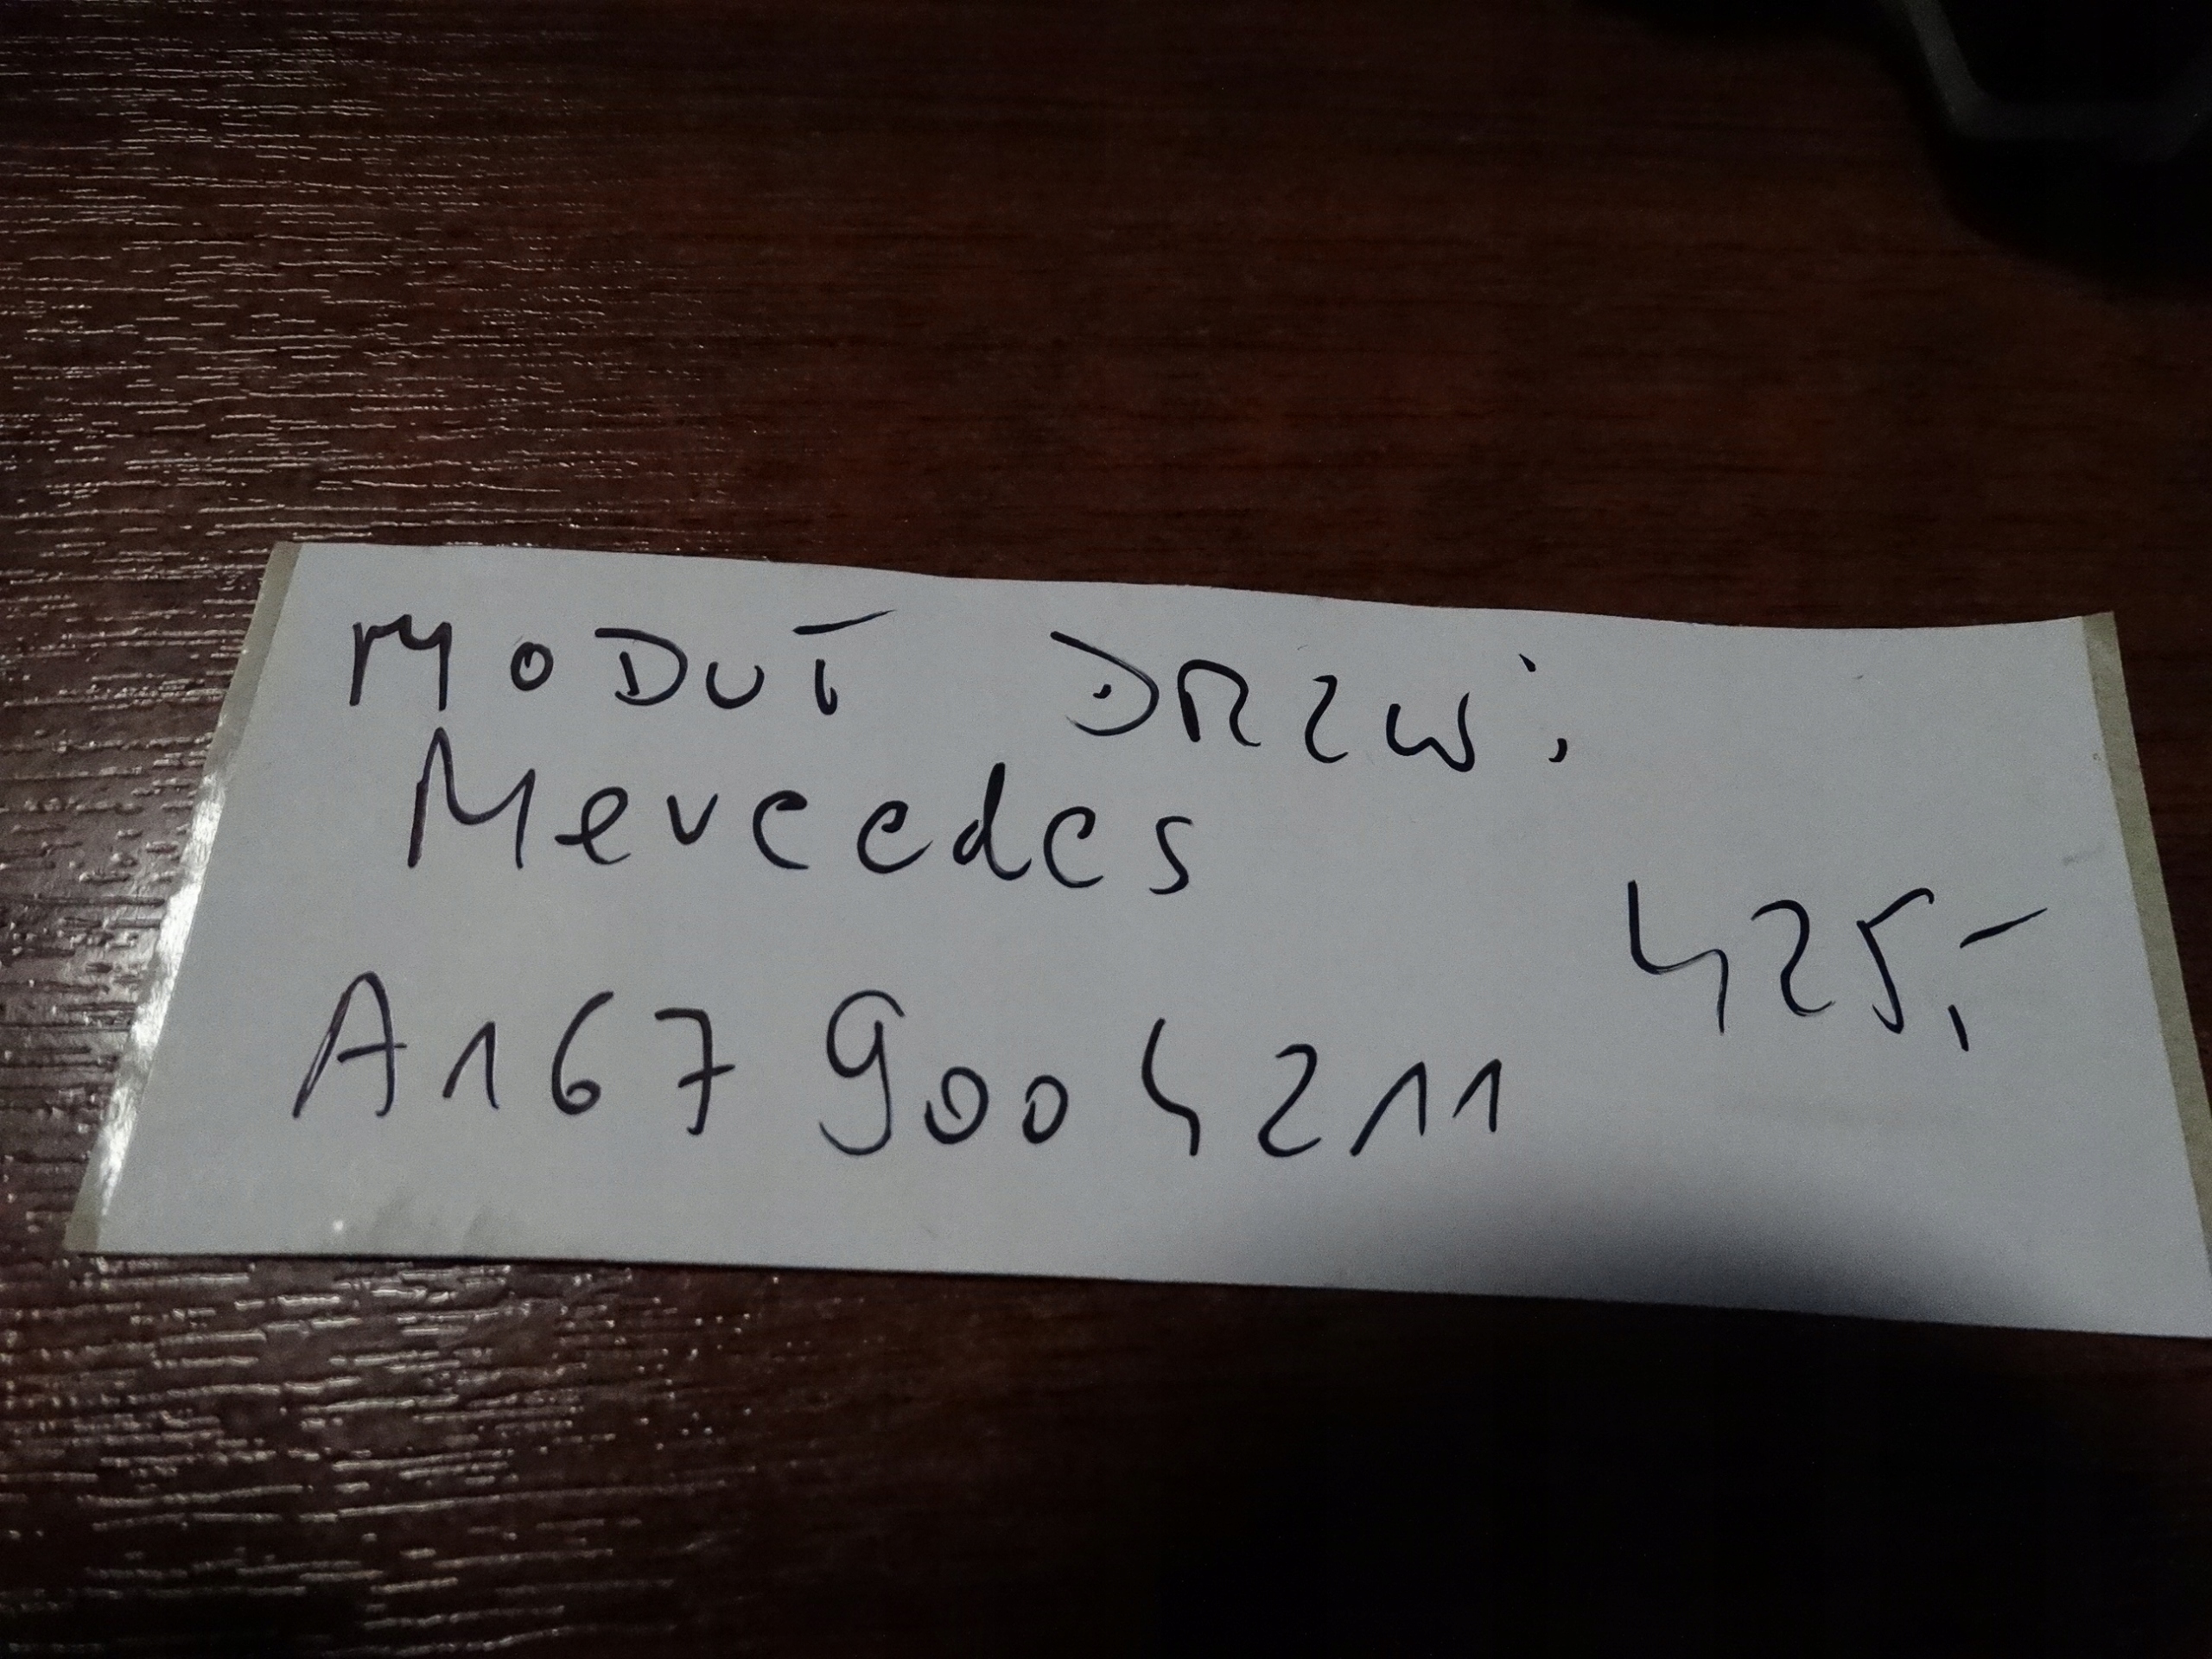 MODUŁ DRZWI,
Mercedes
425,-
A167 900 4211